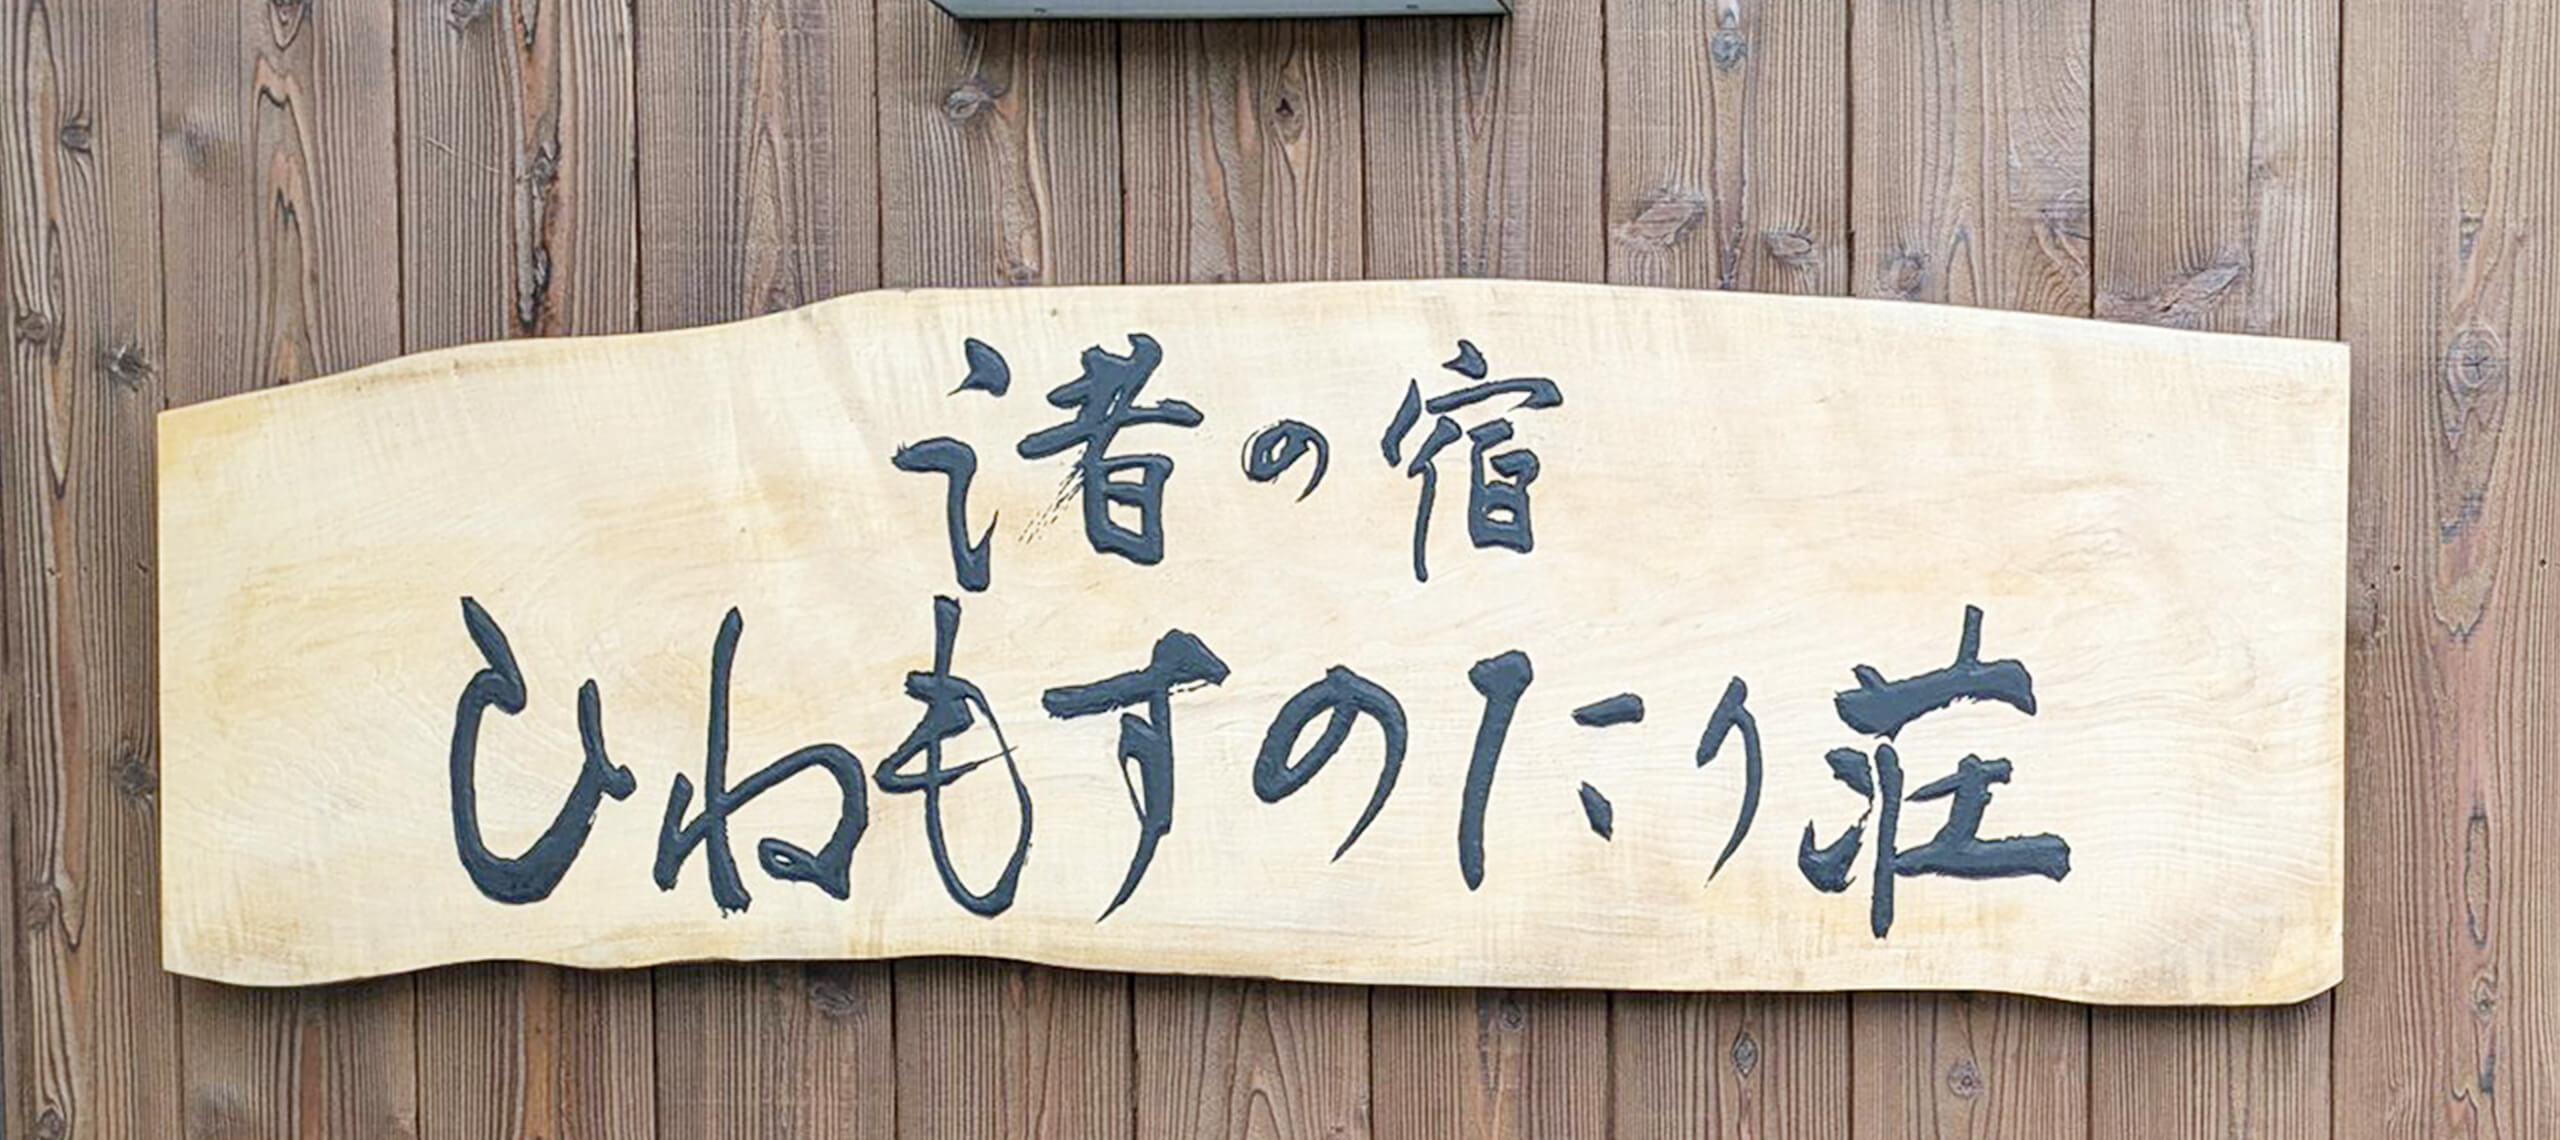 渚の宿
ひねもすのたり荘